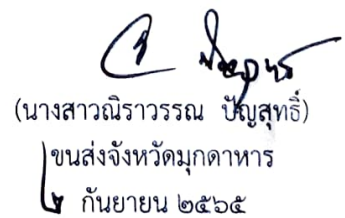 (นางสาวณิราวรรณ ปัญสุทธิ์)
ขนส่งจังหวัดมุกดาหาร
๒ กันยายน ๒๕๖๕